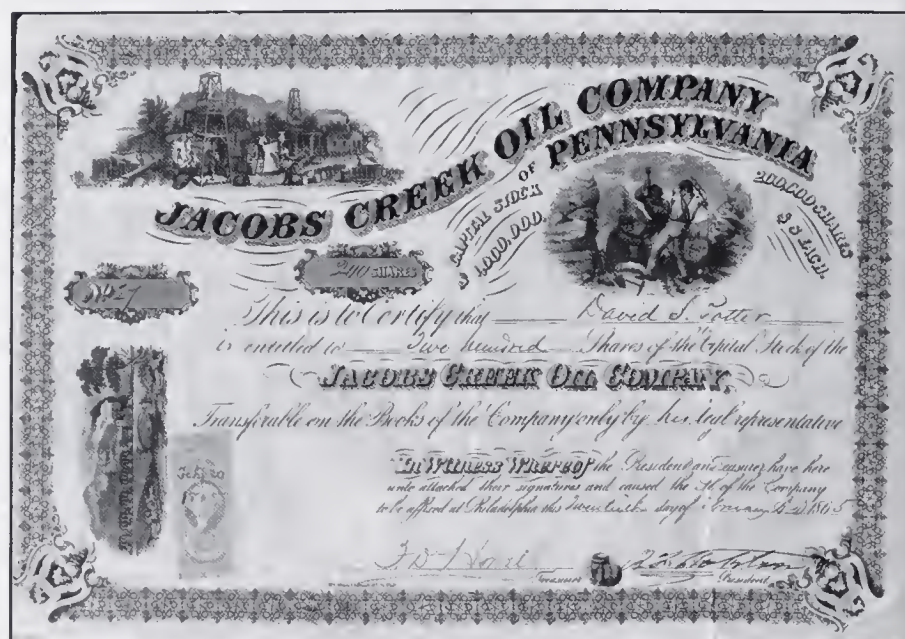 JACOBS CREEK OIL COMPANY
OF PENNSYLVANIA
CAPITAL STOCK
$ 1,000,000.
200,000 SHARES
$ 5 EACH.
200 SHARES
No 17
This is to Certify that David S.
is entitled to Two hundred Shares of the Capital Stock of the
JACOBS CREEK OIL COMPANY,
Transferable on the Books of the Company only by his legal representative
In Witness Whereof the President and have here
unto attached their signatures and caused the Seal of the Company
to be affixed at Philadelphia this Twentieth day of A.D. 1865
Treasurer
President